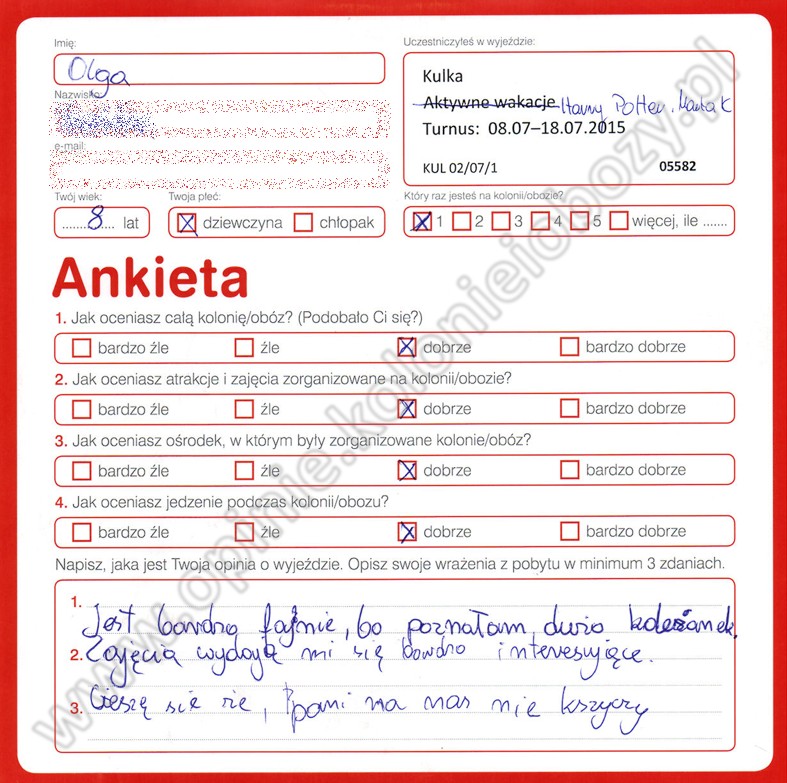 Imię:
Olga
Nazwisko:
e-mail:
Twój wiek:
8 lat
Twoja płeć:
X dziewczyna chłopak
Uczestniczyłeś w wyjeździe:
Kulka
Aktywne wakacje Harry Potter.
Turnus: 08.07–18.07.2015
KUL 02/07/1 05582
Który raz jesteś na kolonii/obozie?
X 1 2 3 4 5 więcej, ile .......
Ankieta
1. Jak oceniasz całą kolonię/obóz? (Podobało Ci się?)
bardzo źle źle X dobrze bardzo dobrze
2. Jak oceniasz atrakcje i zajęcia zorganizowane na kolonii/obozie?
bardzo źle źle X dobrze bardzo dobrze
3. Jak oceniasz ośrodek, w którym były zorganizowane kolonie/obóz?
bardzo źle źle X dobrze bardzo dobrze
4. Jak oceniasz jedzenie podczas kolonii/obozu?
bardzo źle źle X dobrze bardzo dobrze
Napisz, jaka jest Twoja opinia o wyjeździe. Opisz swoje wrażenia z pobytu w minimum 3 zdaniach.
1. Jest bardzo fajnie, bo poznałam dużo koleżanek.
2. Zajęcia wydają mi się bardzo interesujące.
3. Cieszę sie że, pani na nas nie kszyczy
www.opinie.kolonieiobozy.pl